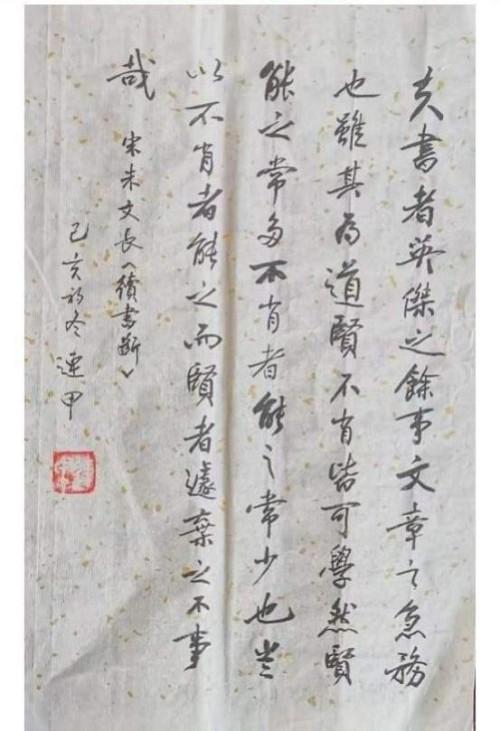 夫書者英傑之餘事文章之急務
也雖其為道賢不肖皆可學然賢
能之常多不肖者能之常少也豈
以不肖者能之而賢者遽棄之不事
哉
宋朱文長《續書斷》
己亥初冬 連甲